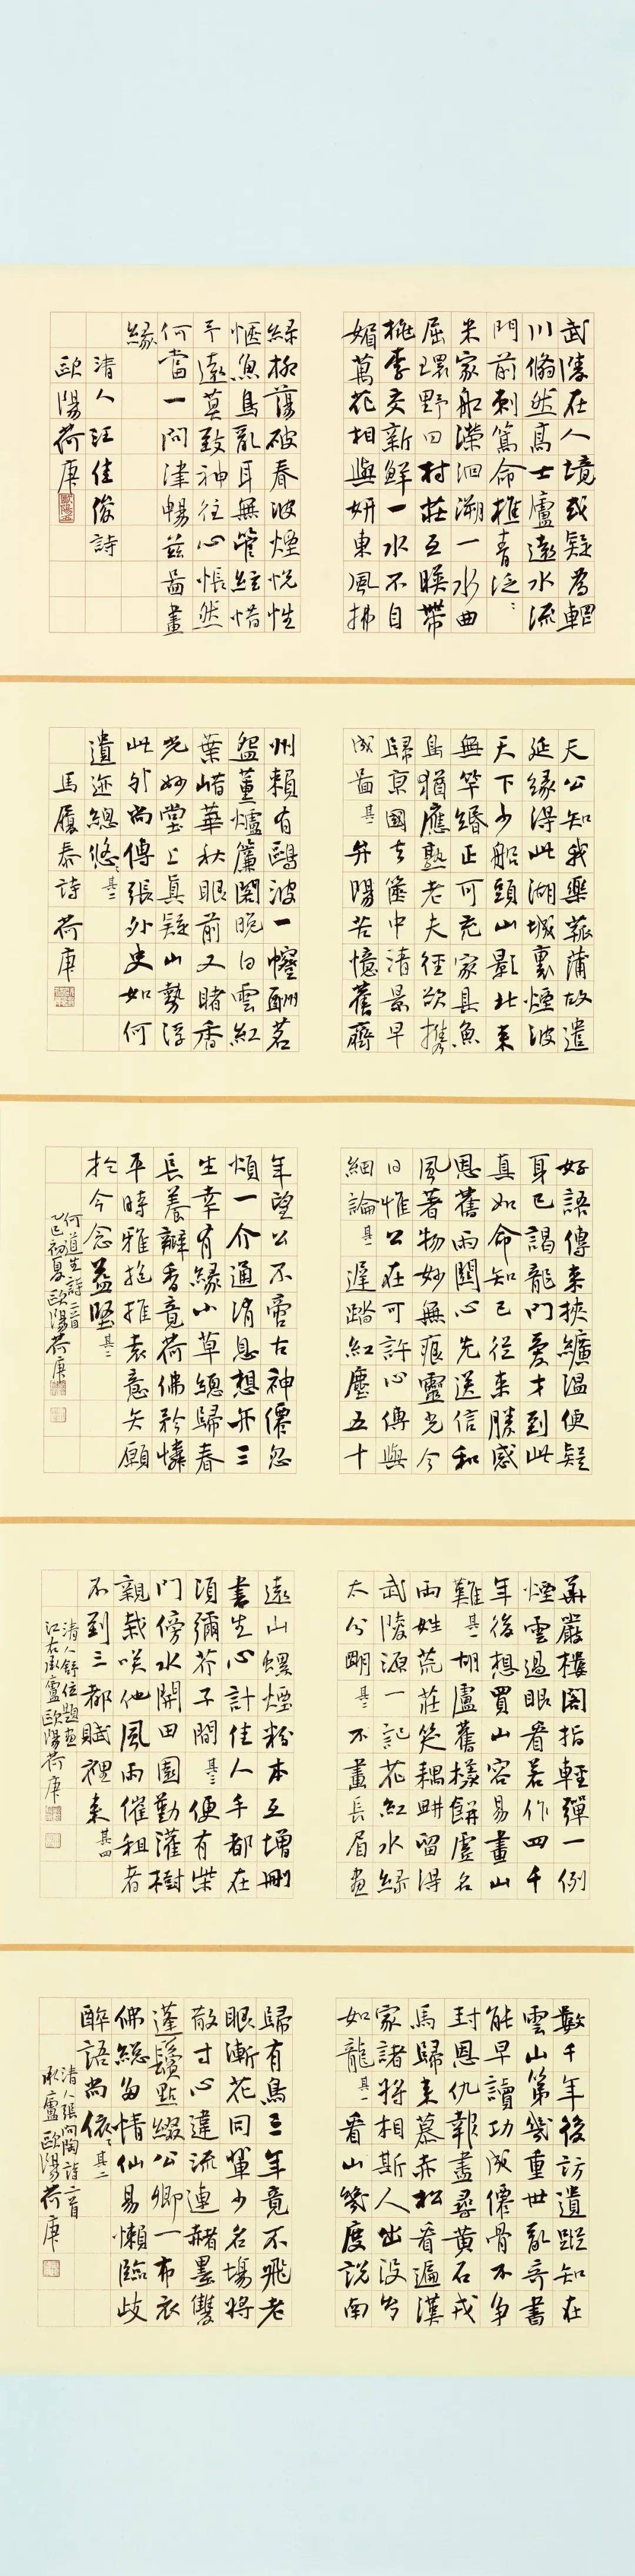 武陵在人境或疑爲輞
川翛然高士廬遠水流
門前刺篙命樵青泛泛
米家船濚洄溯一水曲
屈環野田村莊互暎帶
桃李交新鮮一水不自
媚萬花相與妍東風拂
綠柳蕩破春波煙怳性
愜魚鳥亂耳無管絃惜
予遠莫致神往心悵然
何當一問津暢茲啚畫
緣
清人汪佳俊詩
歐陽荷庚
天公知我樂菰蒲故遣
延緣得此湖城裏煙波
天下少船頭山影北來
無竿緡正可充家具魚
鳥猶應熟老夫徑欲携
歸京國去篋中清景早
成啚其一弁陽苦憶舊齊
州賴有鷗波一幰酬茗
盌董爐簾閣晚白雲紅
葉峼華秋眼前又睹香
光妙堂上真疑山勢浮
此外尚傳張外史如何
遺迹總悠悠其二
馬履泰詩荷庚
好語傳來挾纊溫便疑
身已謁龍門愛才到此
真如命知己從來勝感
恩舊雨關心先送信和
風著物妙無痕靈光今
日惟公在可許心傳與
細論其一遲踏紅塵五十
年望公不啻古神僊忽
煩一介通消息想亦三
生幸有緣小草總歸春
長養瓣香竟荷佛矜憐
平時雅抱推袁意矢願
於今念益堅其二
何道生詩二首
乙巳初夏歐陽荷庚
華嚴樓閣指輕彈一例
煙雲過眼看若作四千
年後想買山容易畫山
難其一胡盧舊樣餅虛名
兩姓荒莊笑耦畊留得
武陵源一記花紅水綠
太分明其二不畫長眉畫
遠山螺煙粉本互增刪
書生心計佳人手都在
須彌芥子間其三便有柴
門傍水開田園勤灌樹
親栽咲他風雨催租者
不到三都賦裡來其四
清人舒位題畫
江右承廬歐陽荷庚
數千年後訪遺蹤知在
雲山第幾重世亂奇書
能早讀功成僊骨不争
封恩仇報盡尋黄石戎
馬歸来慕赤松看遍漢
家諸將相斯人出没各
如龍其一看山幾度説南
歸有鳥三年竟不飛老
眼漸花同輩少名場將
散寸心違流連赭墨雙
蓬鬢點綴公卿一布衣
佛總多情仙易懶臨歧
醉語尚依依其二
清人張問陶詩二首
承廬歐陽荷庚